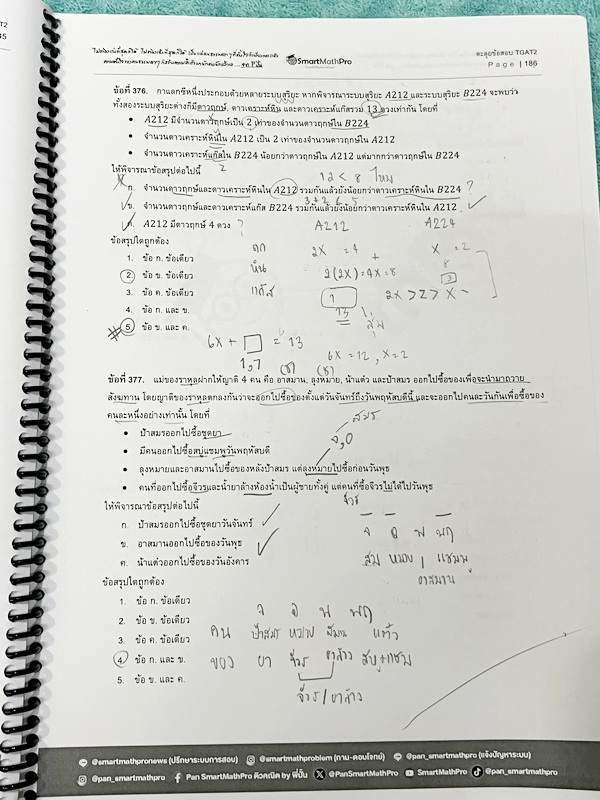 SmartMathPro
ตะลุยข้อสอบ TGAT2
Page | 186
ข้อที่ 376. กาแลกซีหนึ่งประกอบด้วยหลายระบบสุริยะ หากพิจารณาระบบสุริยะ A212 และระบบสุริยะ B224 จะพบว่า
ทั้งสองระบบสุริยะต่างก็มีดาวฤกษ์, ดาวเคราะห์หิน และดาวเคราะห์แก๊สรวม 13 ดวงเท่ากัน โดยที่
• A212 มีจำนวนดาวฤกษ์เป็น 2 เท่าของจำนวนดาวฤกษ์ใน B224
• จำนวนดาวเคราะห์หินใน A212 เป็น 2 เท่าของจำนวนดาวฤกษ์ใน A212
• จำนวนดาวเคราะห์แก๊สใน B224 น้อยกว่าดาวฤกษ์ใน A212 แต่มากกว่าดาวฤกษ์ใน B224
ให้พิจารณาข้อสรุปต่อไปนี้
12 < 8 ไหม
ก. จำนวนดาวฤกษ์และดาวเคราะห์หินใน A212 รวมกันแล้วยังน้อยกว่าดาวเคราะห์หินใน B224 ?
ข. จำนวนดาวฤกษ์และดาวเคราะห์แก๊ส B224 รวมกันแล้วยังน้อยกว่าดาวเคราะห์หินใน A212
ค. A212 มีดาวฤกษ์ 4 ดวง ?
A212 A224
ข้อสรุปใดถูกต้อง
1. ข้อ ก. ข้อเดียว
ฤก 2X = 4 X = 2
2. ข้อ ข. ข้อเดียว
หิน 2(2X) = 4X = 8 8
3. ข้อ ค. ข้อเดียว
แก๊ส 1 2X > Z > X 3
4. ข้อ ก. และ ข.
13
5. ข้อ ข. และ ค.
6X + □ = 13
1, 7 6X = 12 , X = 2
ข้อที่ 377. แม่ของราหุลฝากให้ญาติ 4 คน คือ อาสมาน, ลุงหมาย, น้าแต๋ว และป้าสมร ออกไปซื้อของเพื่อจะนำมาถวาย
สังฆทาน โดยญาติของราหุลตกลงกันว่าจะออกไปซื้อของตั้งแต่วันจันทร์ถึงวันพฤหัสบดีนี้ และจะออกไปคนละวันกันเพื่อซื้อของ
คนละหนึ่งอย่างเท่านั้น โดยที่
• ป้าสมรออกไปซื้อชุดยา
สมร
• มีคนออกไปซื้อสบู่แชมพูวันพฤหัสบดี
จ,อ
• ลุงหมายและอาสมานไปซื้อของหลังป้าสมร แต่ลุงหมายไปซื้อก่อนวันพุธ
• คนที่ออกไปซื้อจีวรและน้ำยาล้างห้องน้ำเป็นผู้ชายทั้งคู่ แต่คนที่ซื้อจีวรไม่ได้ไปวันพุธ
ให้พิจารณาข้อสรุปต่อไปนี้
จีวร
ก. ป้าสมรออกไปซื้อชุดยาวันจันทร์
จ อ พ พฤ
ข. อาสมานออกไปซื้อของวันพุธ
ค. น้าแต๋วออกไปซื้อของวันอังคาร
สม หมาย แชมพู
อาสมาน
ข้อสรุปใดถูกต้อง
1. ข้อ ก. ข้อเดียว
จ อ พ พฤ
2. ข้อ ข. ข้อเดียว
3. ข้อ ค. ข้อเดียว
คน ป้าสมร หมาย สมาน แต๋ว
4. ข้อ ก. และ ข.
ของ ยา จีวร ยาล้าง สบู่+แชม
5. ข้อ ข. และ ค.
จีวร / ยาล้าง
@smartmathpronews (ปรึกษาระบบการสอบ) @smartmathproblem (ถาม-ตอบโจทย์) @pan_smartmathpro (แจ้งปัญหาระบบ)
@pan_smartmathpro Pan SmartMathPro ติวคณิต by พี่ปั้น @PanSmartMathPro SmartMathPro @pan_smartmathpro